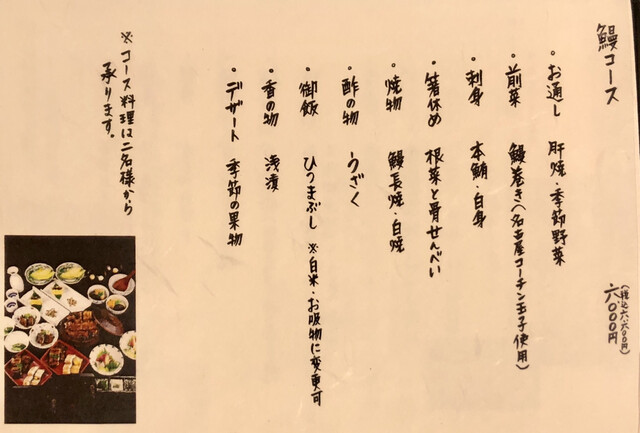 鰻コース
六、〇〇〇円
(税込六、六〇〇円)
・お通し 肝焼・季節野菜
・前菜 鰻巻き(名古屋コーチン玉子使用)
・刺身 本鮪・白身
・箸休め 根菜と骨せんべい
・焼物 鰻長焼・白焼
・酢の物 うざく
・御飯 ひつまぶし ※白米・お吸物に変更可
・香の物 浅漬
・デザート 季節の果物
※コース料理は二名様から
承ります。